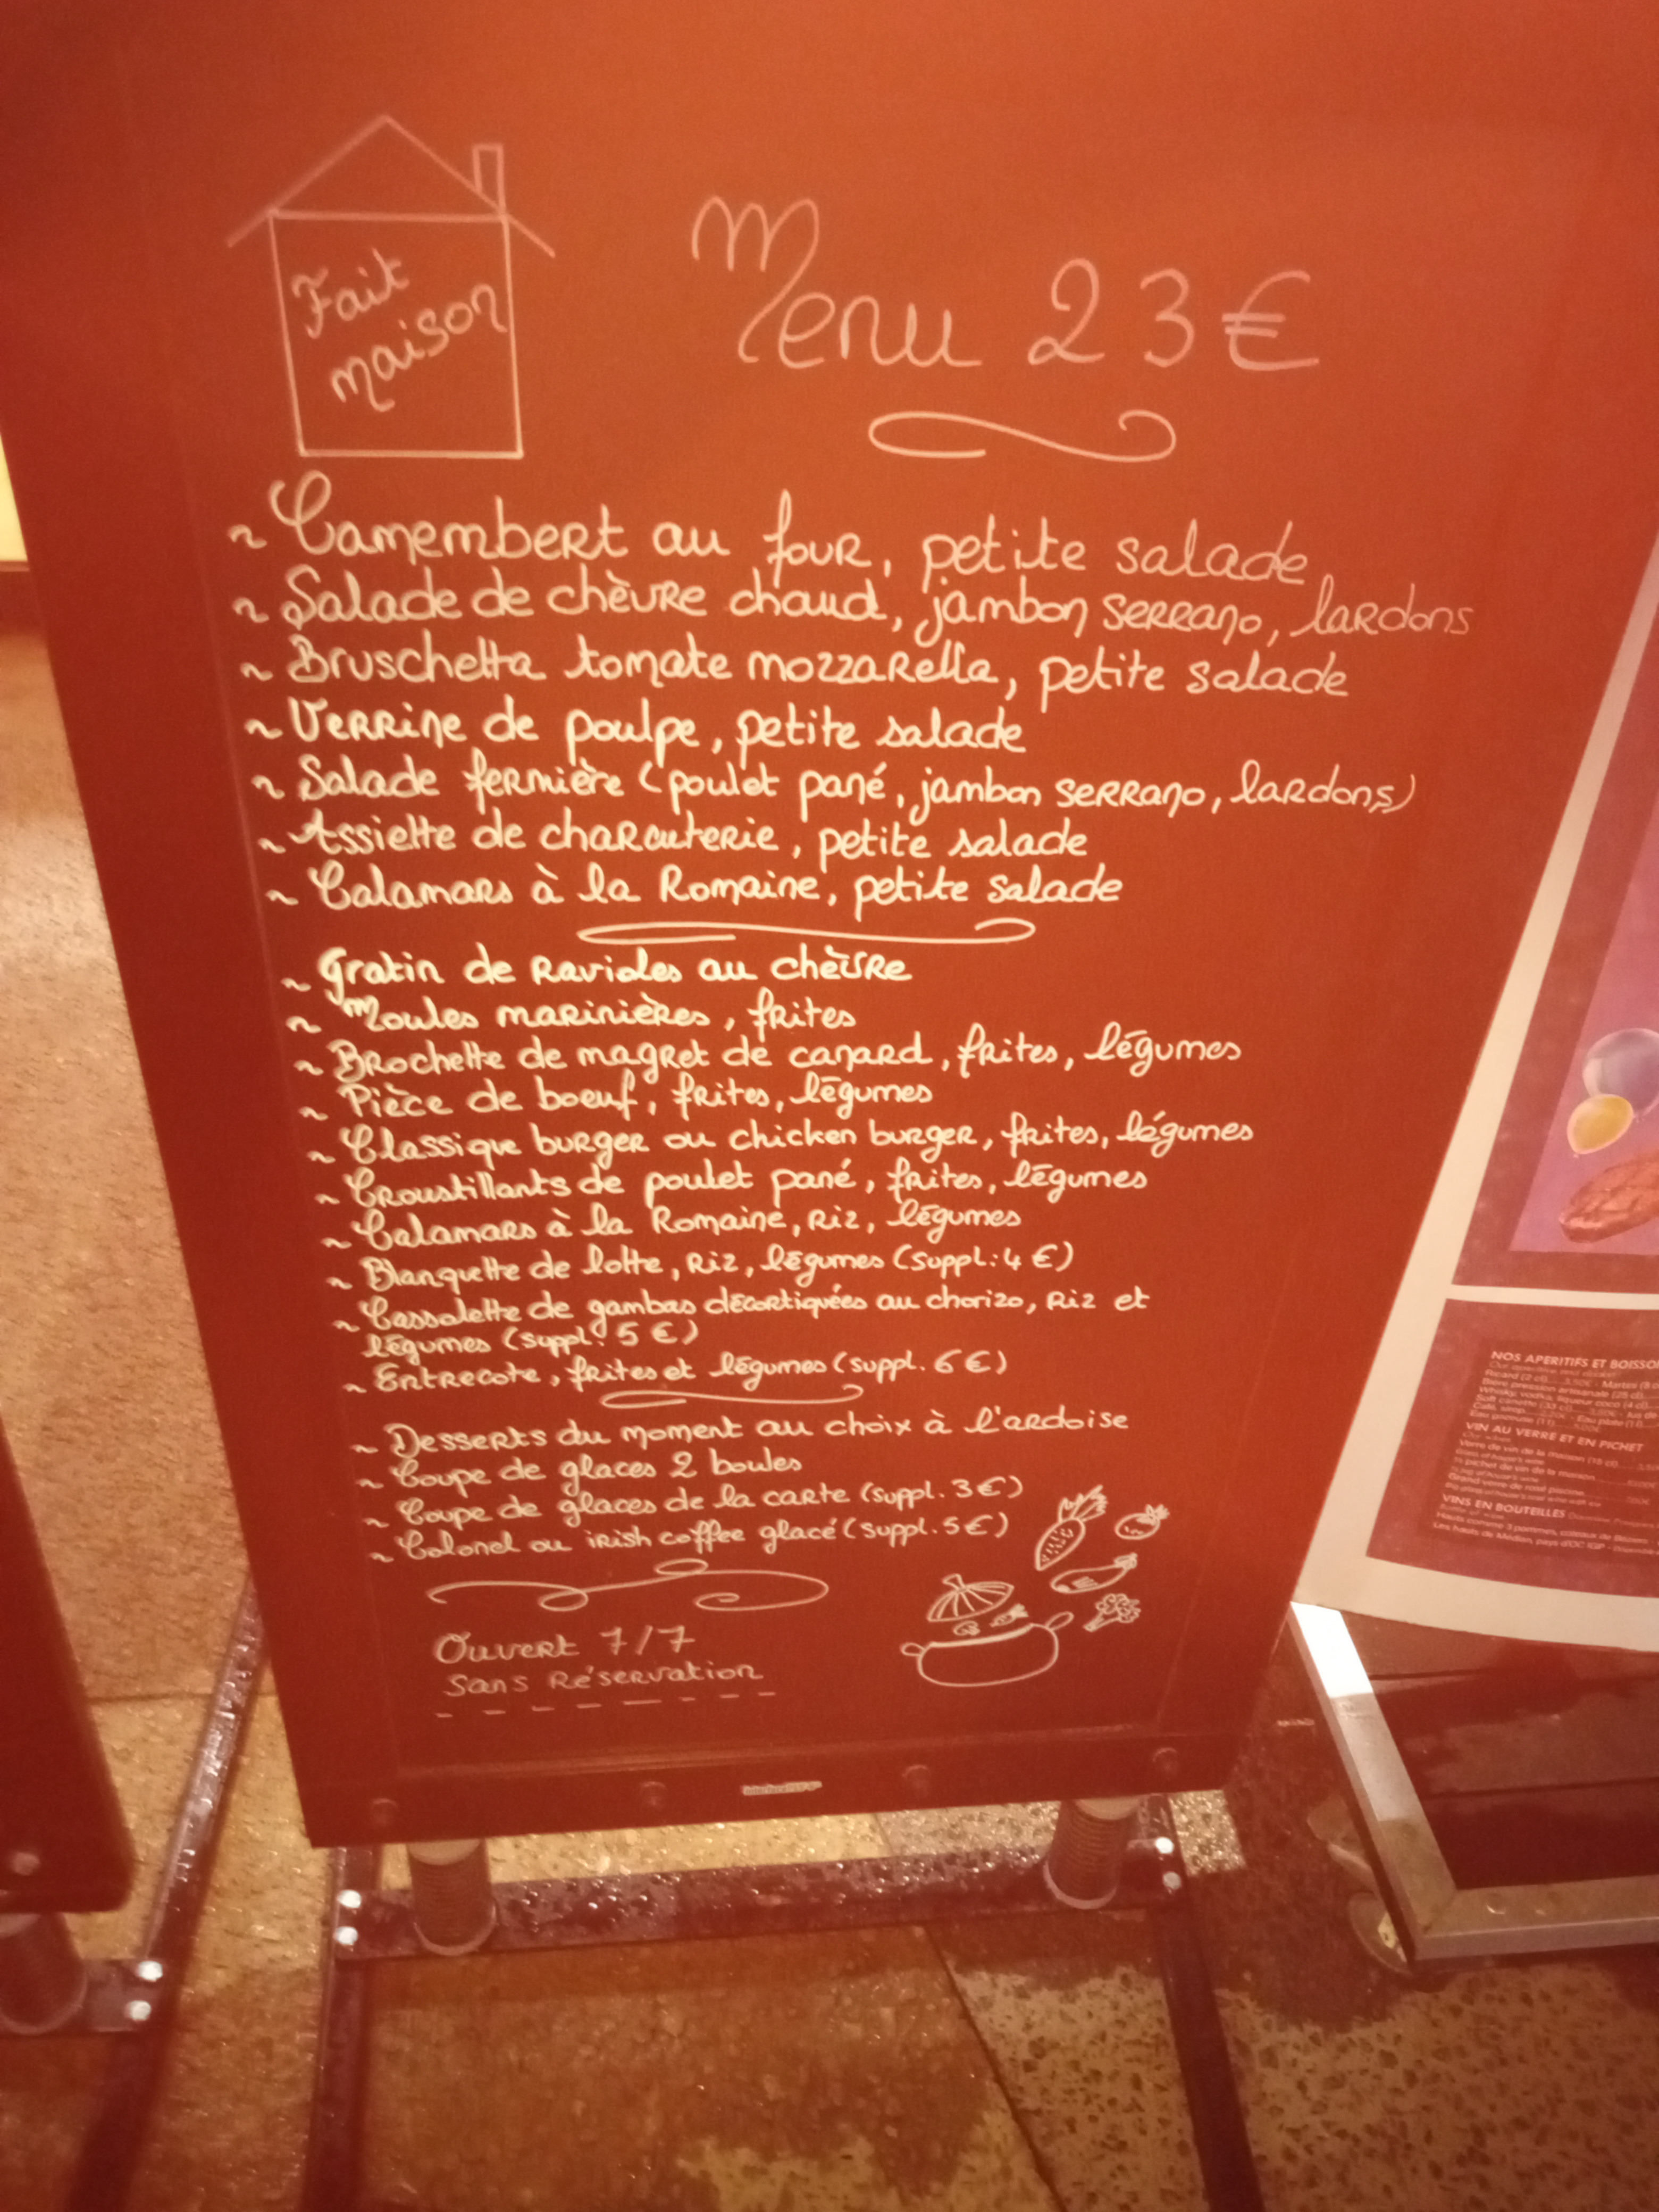 Fait
maison
Menu 23€
~ Camembert au four, petite salade
~ Salade de chèvre chaud, jambon serrano, lardons
~ Bruschetta tomate mozzarella, petite salade
~ Verrine de poulpe, petite salade
~ Salade fermière (poulet pané, jambon serrano, lardons)
~ Assiette de charcuterie, petite salade
~ Calamars à la Romaine, petite salade
~ Gratin de Ravioles au chèvre
~ Moules marinières, frites
~ Brochette de magret de canard, frites, légumes
~ Pièce de boeuf, frites, légumes
~ Classique burger ou chicken burger, frites, légumes
~ Croustillants de poulet pané, frites, légumes
~ Calamars à la Romaine, riz, légumes
~ Blanquette de lotte, riz, légumes (suppl: 4 €)
~ Cassolette de gambas décortiquées au chorizo, riz et
légumes (suppl: 5 €)
~ Entrecote, frites et légumes (suppl. 6€)
~ Desserts du moment au choix à l'ardoise
~ Coupe de glaces 2 boules
~ Coupe de glaces de la carte (suppl. 3€)
~ Colonel ou irish coffee glacé (suppl. 5€)
Ouvert 7/7
Sans Réservation
NOS APERITIFS ET BOISSO
Ricard (2 cl)
Bière pression artisanale (25 cl)
Whisky, vodka, liqueur coco (4 cl)
VIN AU VERRE ET EN PICHET
Verre de vin de la maison (15 cl)
pichet de vin de la maison
Grand verre de rosé piscine
VINS EN BOUTEILLES
Les hauts de Médian, pays d'OC IGP